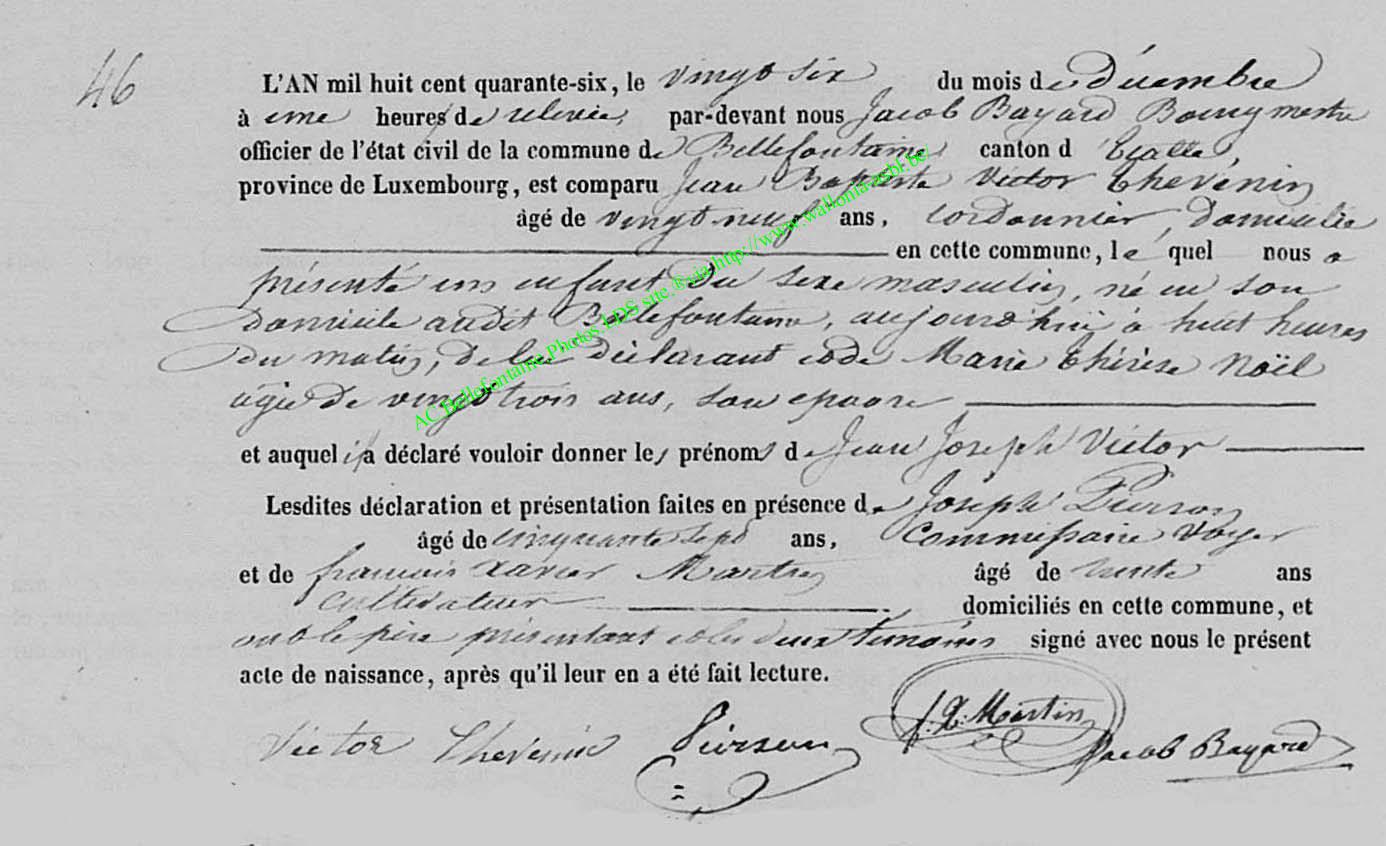 46
L'AN mil huit cent quarante-six, le vingt six du mois de décembre
à une heure de relevée, par-devant nous Jacob Bayard Bourgmestre
officier de l'état civil de la commune de Bellefontaine canton d' Etalle,
province de Luxembourg, est comparu Jean Baptiste Victor Thevenin
âgé de vingt neuf ans, cordonnier, domicilié
en cette commune, lequel nous a
présenté un enfant du sexe masculin, né en son
domicile audit Bellefontaine, aujourd'hui à huit heures
du matin, de lui déclarant et de Marie Thérèse Noël
agée de vingt trois ans, son epouse
et auquel il a déclaré vouloir donner les prénoms de Jean Joseph Victor
Lesdites déclaration et présentation faites en présence de Joseph Pierson
âgé de cinquante sept ans, Commissaire Voyer
et de françois Xavier Martin âgé de trente ans
cultivateur domiciliés en cette commune, et
ont le père présentant et les deux témoins signé avec nous le présent
acte de naissance, après qu'il leur en a été fait lecture.
Victor Thevenin Pierson f. X. Martin Jacob Bayard
AC Bellefontaine Photos LDS site ® via http://www.wallonia-asbl.be/